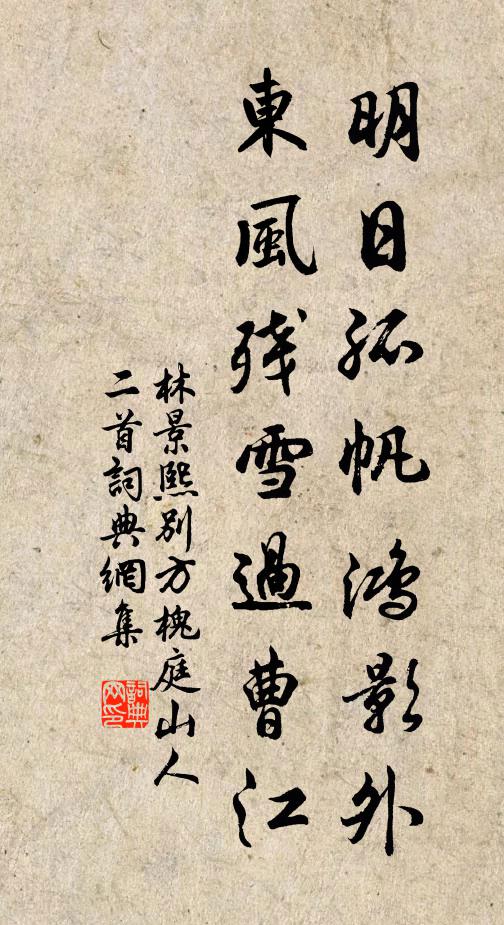 明日孤帆鴻影外
東風殘雪過曹江
林景熙別方槐庭山人
二首詞典網集
詞典網印